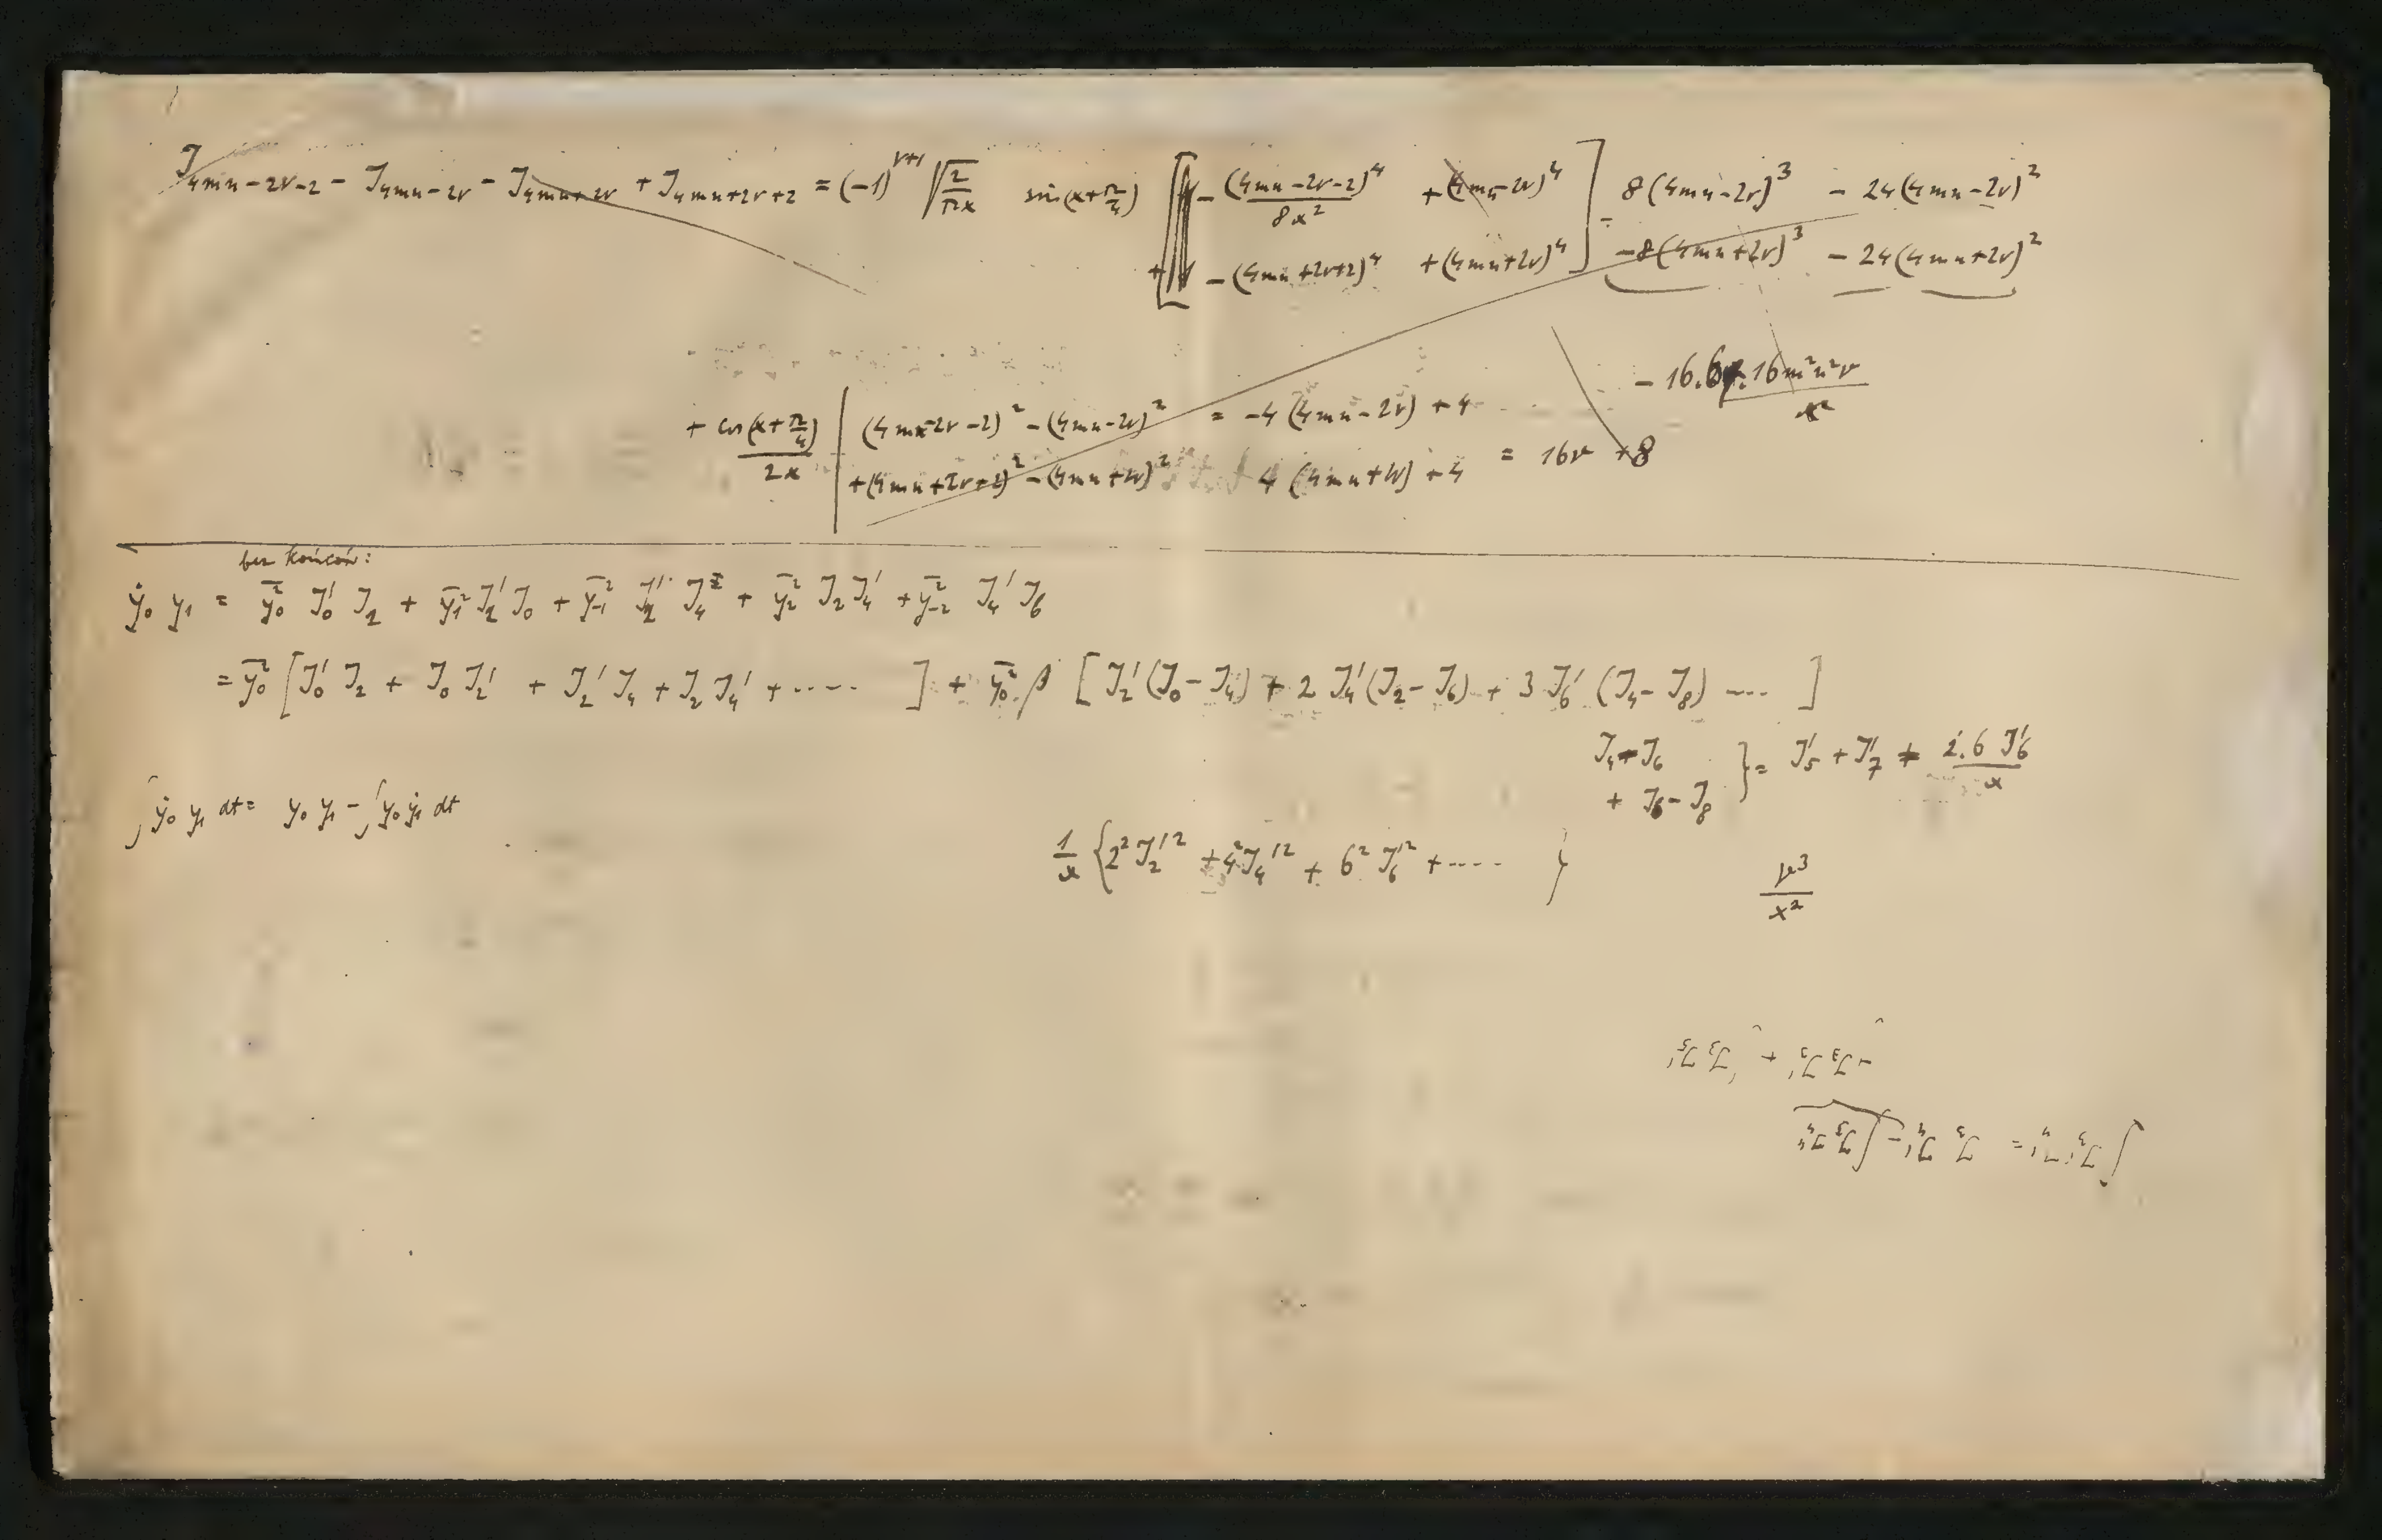 J₄ₘₙ₋₂ᵥ₋₂ − J₄ₘₙ₋₂ᵥ − J₄ₘₙ₊₂ᵥ + J₄ₘₙ₊₂ᵥ₊₂ = (−1)^{ν+1} √(2/πx) sin(x+π/4) [ − (4mn−2ν−2)⁴/8x² + (4mn−2ν)⁴ ] = 8(4mn−2ν)³ − 24(4mn−2ν)²
+ [ − (4mn+2ν+2)⁴ + (4mn+2ν)⁴ ] −8(4mn+2ν)³ − 24(4mn+2ν)²
− 16.6.16m²n²ν / x²
+ cos(x+π/4)/2x | (4mn−2ν−2)² − (4mn−2ν)² = −4(4mn−2ν) + 4
+(4mn+2ν+2)² − (4mn+2ν)² + 4(4mn+2ν) + 4 = 16ν + 8
bez końców:
ẏ₀ y₁ = y̅₀² J₀′ J₂ + y̅₁² J₂′ J₀ + y̅₋₁² J₂′ J₄ + y̅₂² J₂ J₄′ + y̅₋₂² J₄′ J₆
= y̅₀² [J₀′ J₂ + J₀ J₂′ + J₂′ J₄ + J₂ J₄′ + ····· ] + y̅₀² β [ J₂′(J₀ − J₄) + 2 J₄′(J₂ − J₆) + 3 J₆′ (J₄ − J₈) ···· ]
J₄ − J₆
+ J₆ − J₈ } = J₅′ + J₇′ + 2.6 J₆′ / x
∫ ẏ₀ y₁ dt = y₀ y₁ − ∫ y₀ ẏ₁ dt
1/x {2² J₂′² + 4² J₄′² + 6² J₆′² + ····· }
μ³/x²
∫ J₃′ J₄′ = J₃ J₄′ − ∫ J₃ J₄″